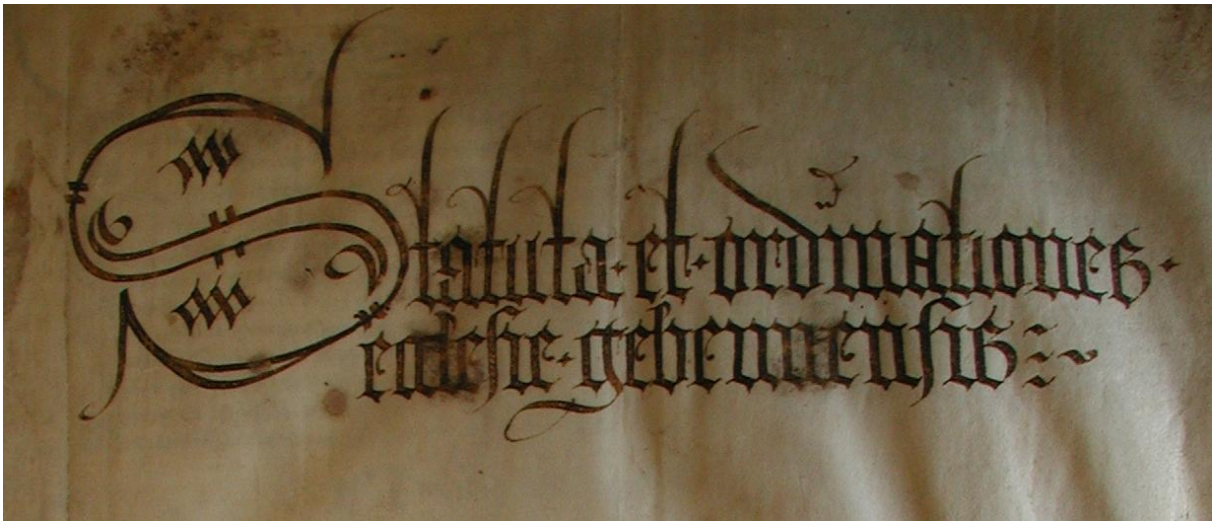 Statuta · et · ordinationes ·
ecclesie · gebennensis